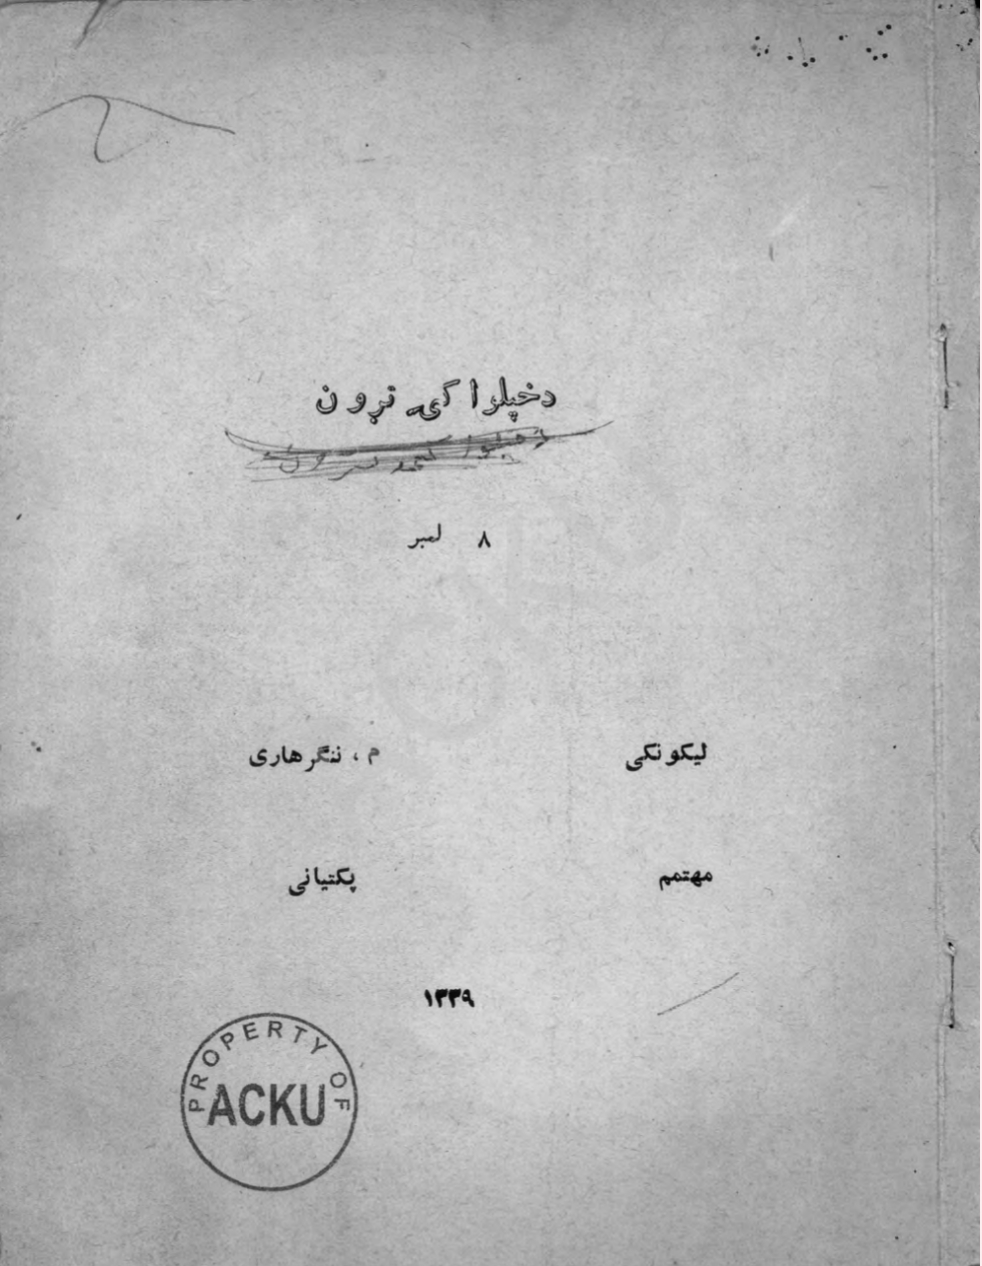 دخپلواکۍ تړون
۸ لمبر
لیکونکی م، ننگرهاری
مهتمم پکتیانی
۱۳۳۹
PROPERTY OF
ACKU